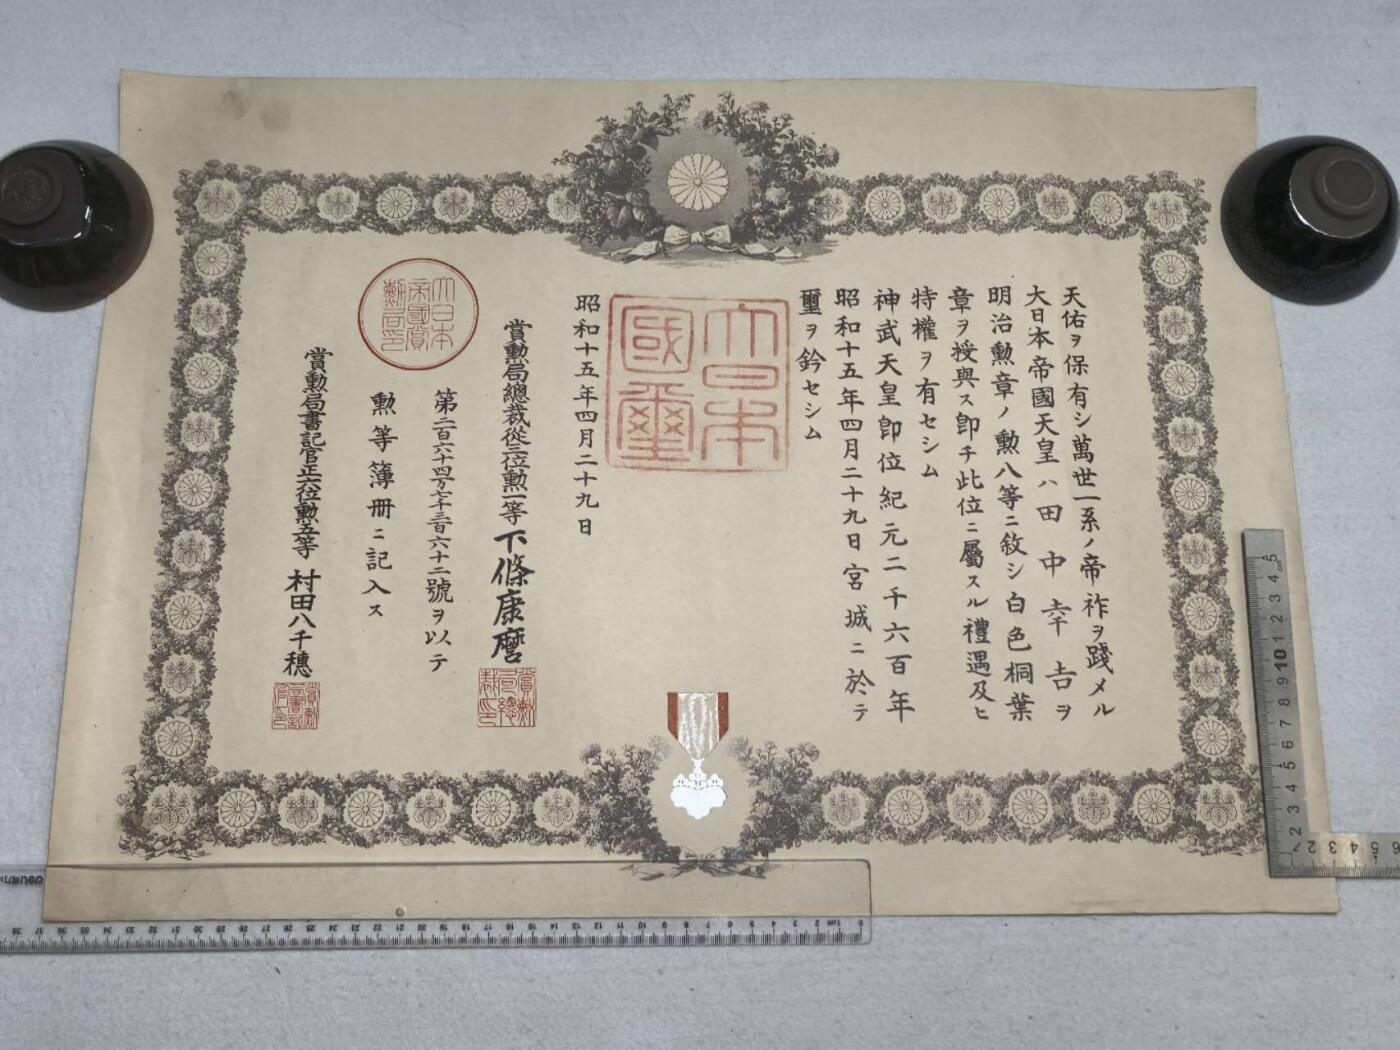 天佑ヲ保有シ萬世一系ノ帝祚ヲ踐メル
大日本帝國天皇ハ田中幸吉ヲ
明治勲章ノ勲八等ニ敘シ白色桐葉
章ヲ授與ス即チ此位ニ屬スル禮遇及ヒ
特權ヲ有セシム
神武天皇即位紀元二千六百年
昭和十五年四月二十九日宮城ニ於テ
璽ヲ鈐セシム
大日本
國璽
昭和十五年四月二十九日
賞勲局總裁從三位勲一等下條康麿
賞勲局總裁之印
第二百六十四万七千三百六十二號ヲ以テ
勲等簿册ニ記入ス
大日本
帝國賞
勲局印
賞勲局書記官正六位勲五等村田八千穗
賞勲局書記官印